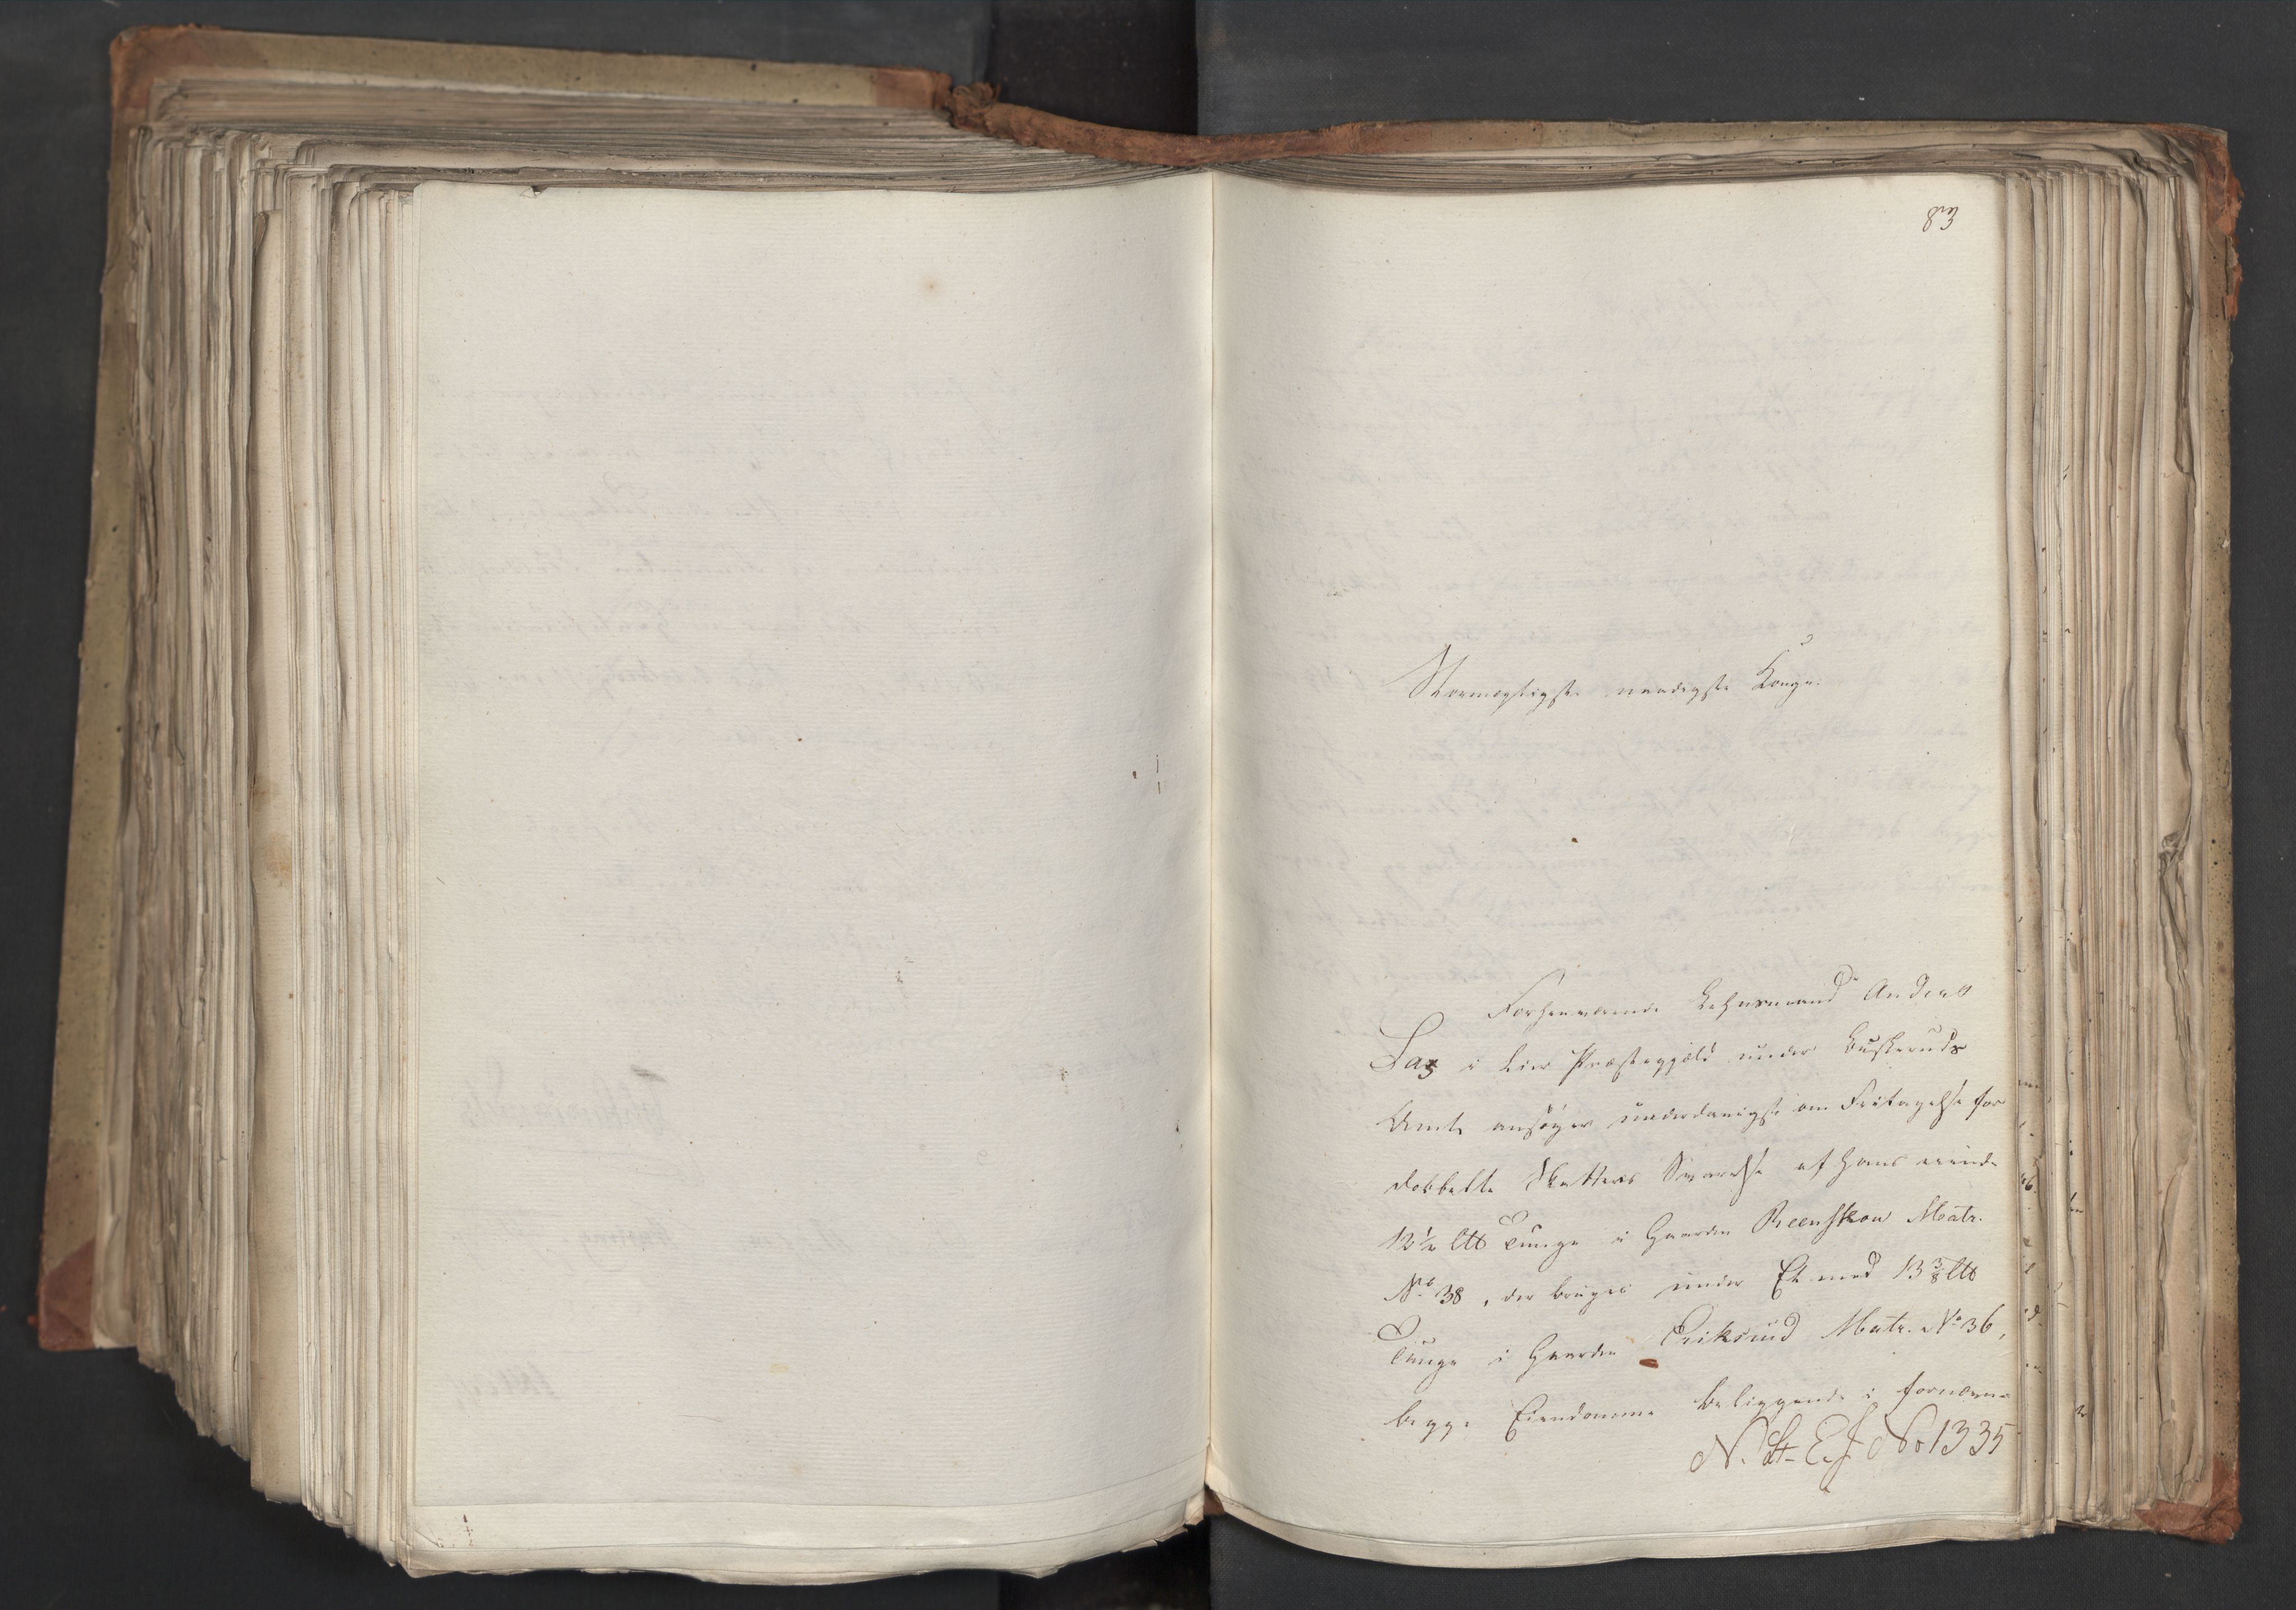 83
Stormægtigste naadigste Konge!
Forhenværende Lehnsmand Anders
Lag i Lier Præstegjæld under Buskeruds
Amt ansøger underdanigst om Fritagelse for
dobbelte Skatters Svarelse af hans eiende
12½ ℔ Tunge i Gaarden Reenskou Matr.
No 38, der bruges under Et med 13⅜ ℔
Tunge i Gaarden Eriksrud Matr. No 36,
begge Eiendomme beliggende i fornævnte
N. St. E. J No 1335